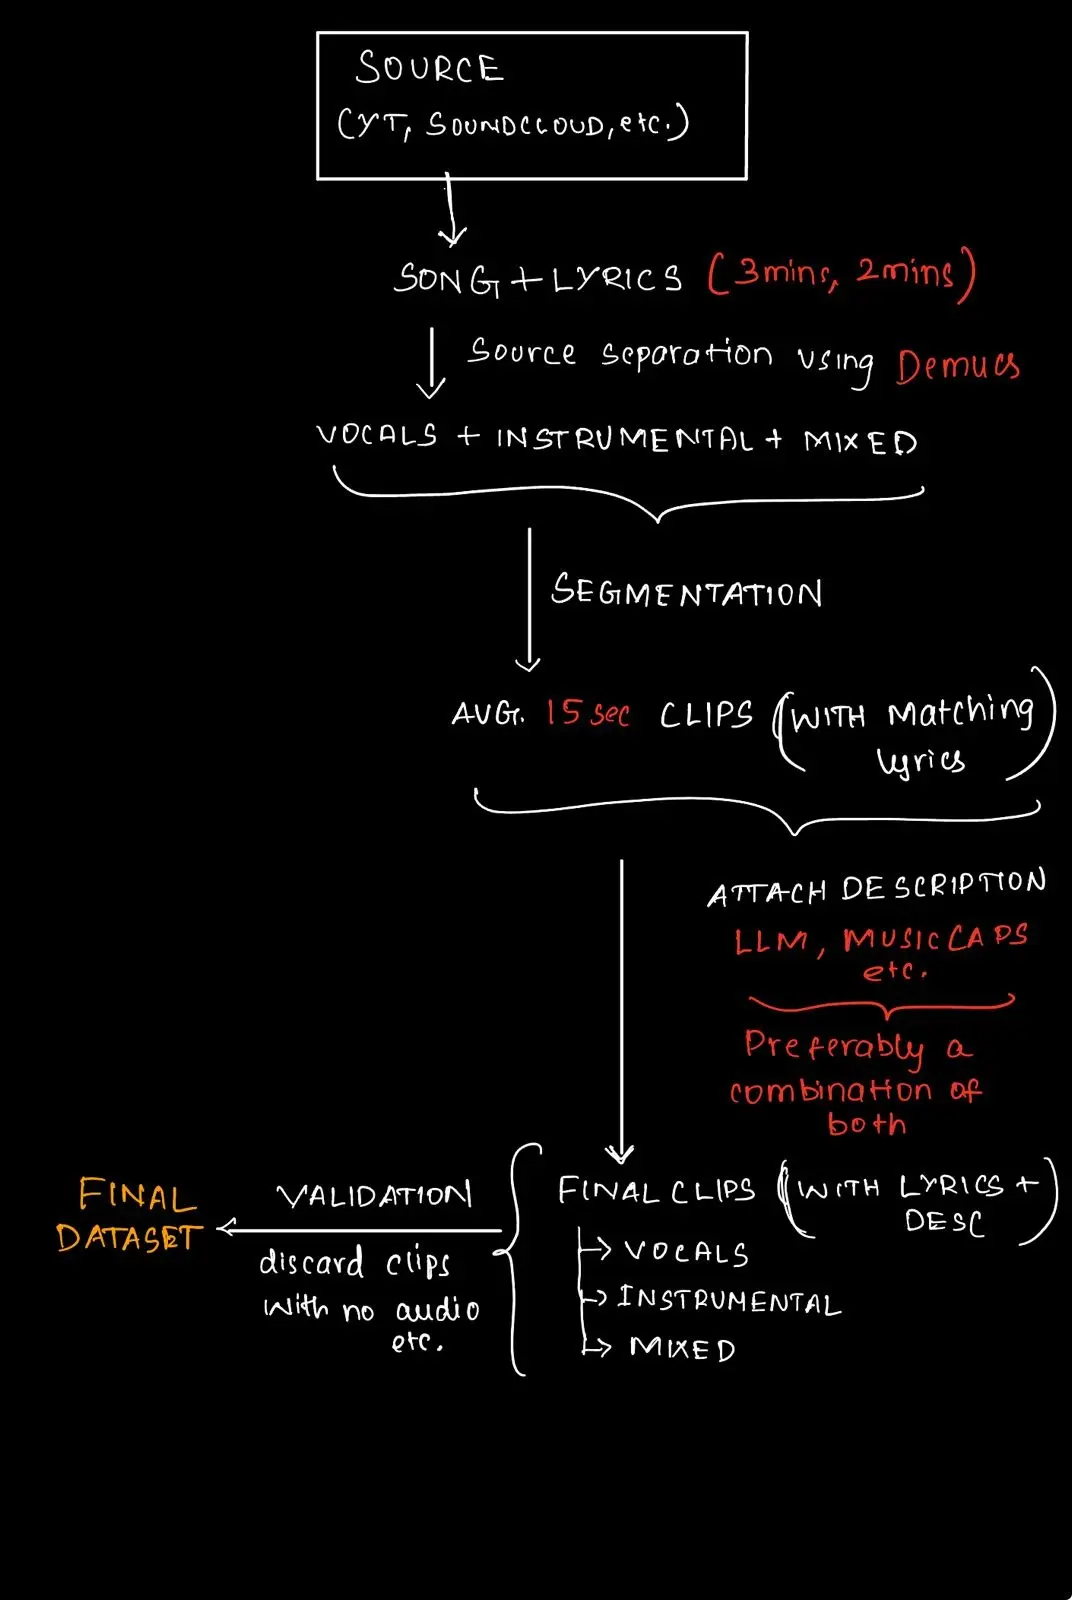 SOURCE
(YT, SOUNDCLOUD, etc.)
SONG + LYRICS (3mins, 2mins)
Source separation using Demucs
VOCALS + INSTRUMENTAL + MIXED
SEGMENTATION
AVG. 15 sec CLIPS (WITH Matching
lyrics)
ATTACH DESCRIPTION
LLM, MUSICCAPS
etc.
Preferably a
combination of
both
FINAL CLIPS (WITH LYRICS +
DESC)
VOCALS
INSTRUMENTAL
MIXED
VALIDATION
discard clips
with no audio
etc.
FINAL
DATASET